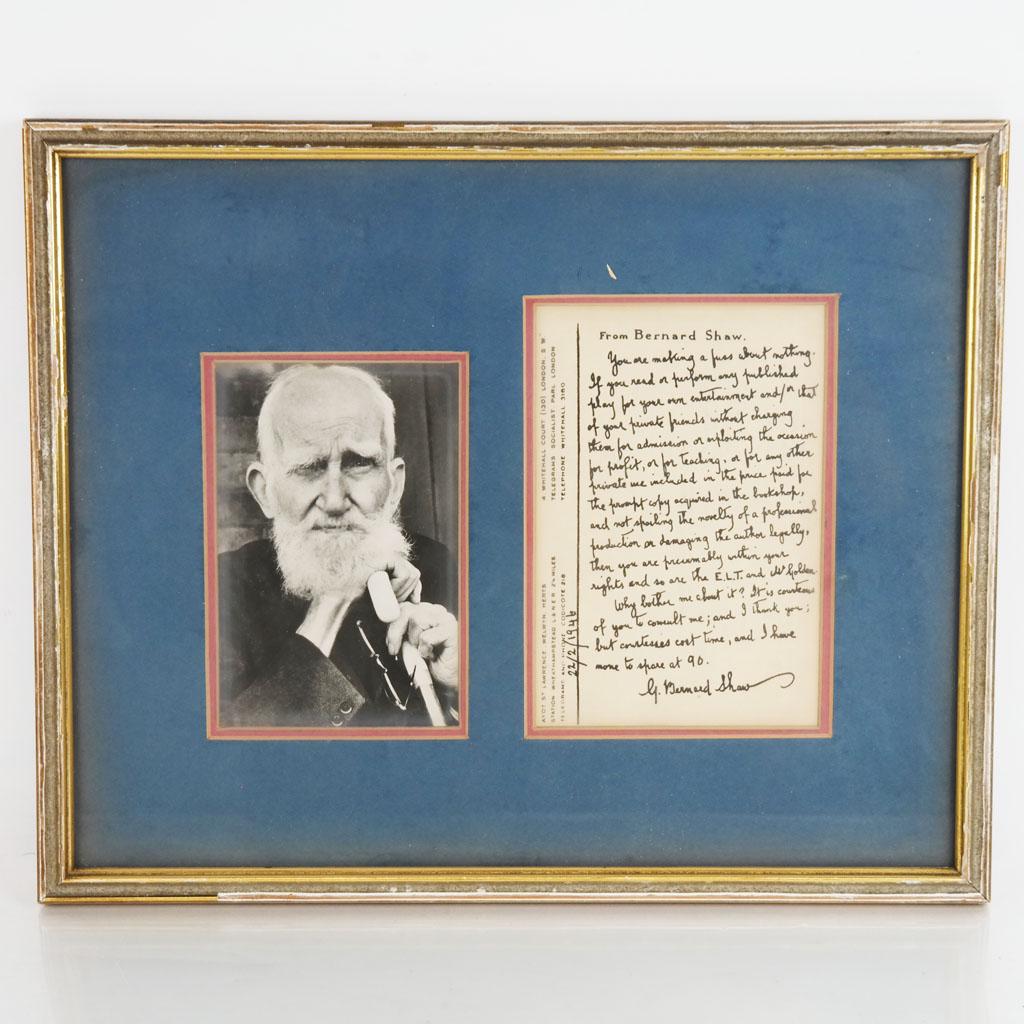 From Bernard Shaw.
You are making a fuss about nothing.
If you read or perform any published
play for your own entertainment and/or that
of your private friends without charging
them for admission or exploiting the occasion
for profit, or for teaching, or for any other
private use included in the price paid for
the prompt copy acquired in the bookshop,
and not spoiling the novelty of a professional
production or damaging the author legally,
then you are presumably within your
rights and so are the E.L.T. and Mr Golden.
Why bother me about it? It is courteous
of you to consult me; and I thank you;
but courtesies cost time, and I have
none to spare at 90.
G. Bernard Shaw
4 WHITEHALL COURT (130) LONDON, S W
TELEGRAMS SOCIALIST PARL LONDON
TELEPHONE WHITEHALL 3160
AYOT ST LAWRENCE WELWYN, HERTS
STATION WHEATHAMPSTEAD L & N E R 2¼ MILES
TELEGRAMS AND PHONE CODICOTE 218
22/2/1946